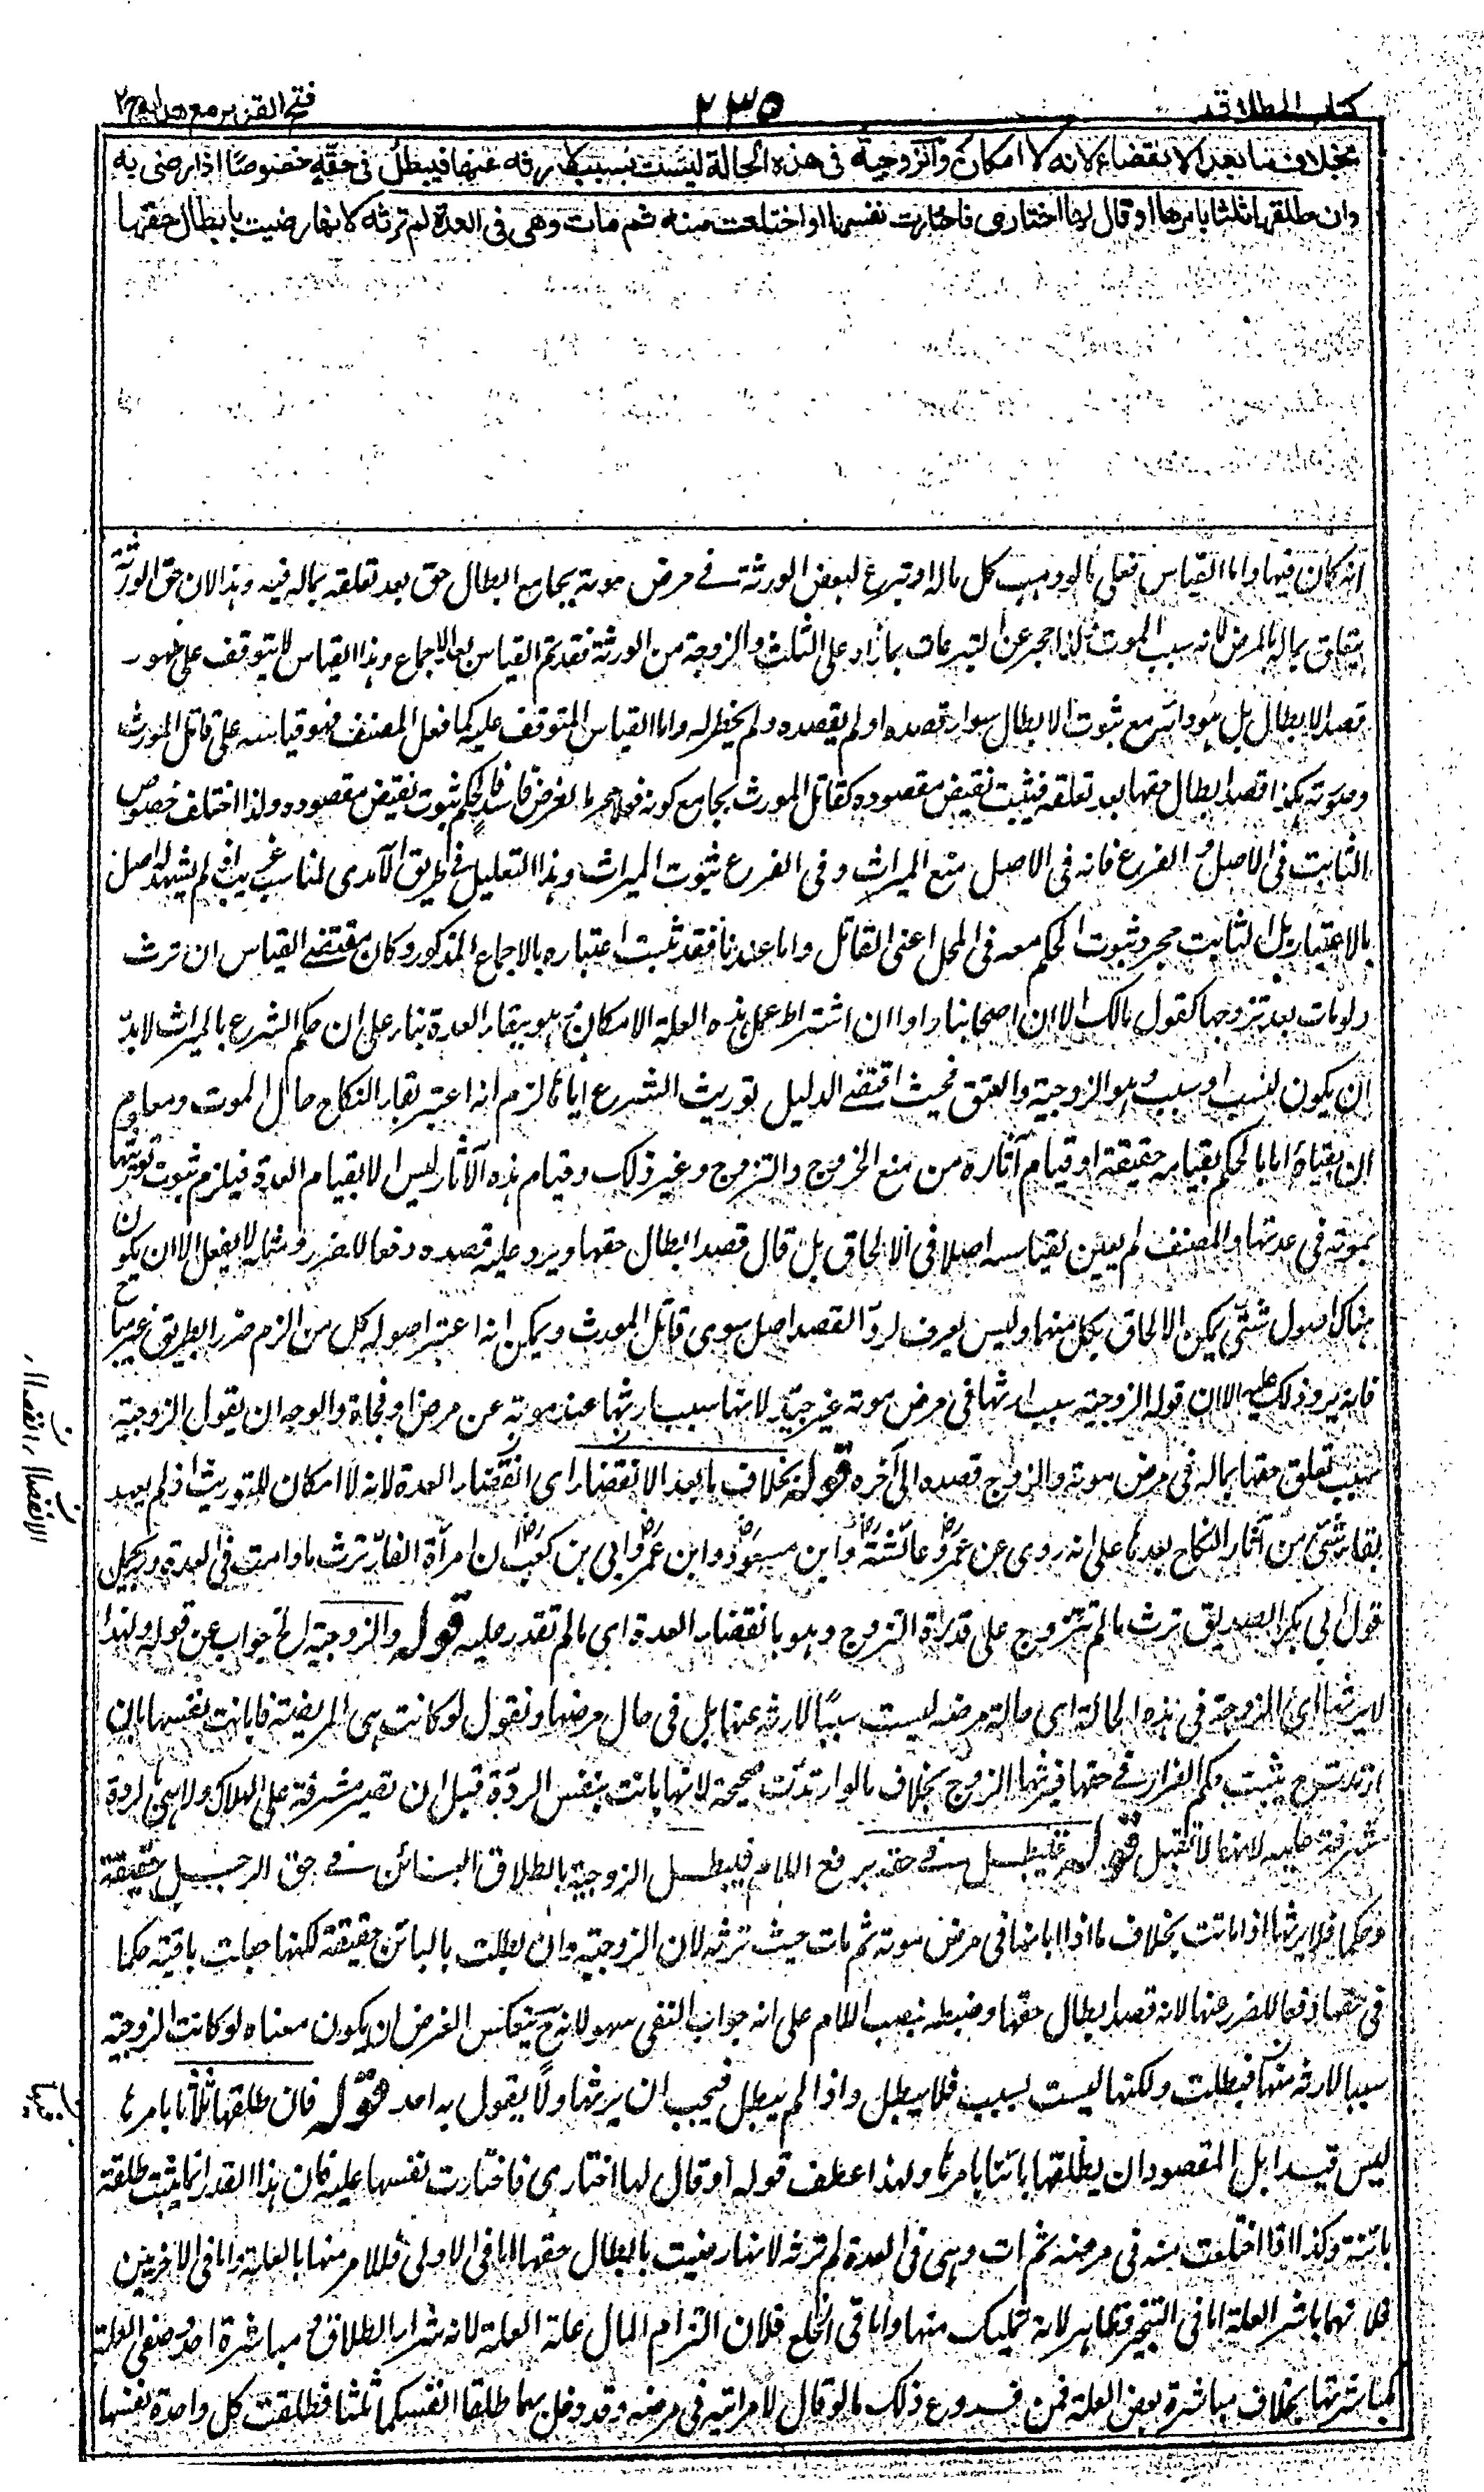 كتاب الطلاق
٢٣٥
فتح القدير مع هدايه ج٢
بخلاف ما بعد الانقضاء لانه لا امكان والزوجية فى هذه الحالة ليست بسبب لارثه عنها فيبطل فى حقه خصوصًا اذا رضى به
وان طلقها ثلثا بامرها او قال لها اختارى فاختارت نفسها او اختلعت منه ثم مات وهى فى العدة لم ترثه لانها رضيت بابطال حقها
انه كان فيها واما القياس فعلى ما لو وهب كل ماله او تبرع لبعض الورثة فے مرض موته بجامع ابطال حق بعد تعلقه بماله فيه وہذا لان حق الورثة
يتعلق بماله بالمرض لانه سبب الموت ولذا حجر عن التبرعات بما زاد على الثلث والزوجة من الورثة فقد تم القياس بعد الاجماع وہذا القياس لا يتوقف على ظهور
قصد الابطال بل ہو دائر مع ثبوت الابطال سواء قصده او لم يقصده ولم يخطر له واما القياس المتوقف عليه كما فعل المصنف فهو قياسه على قاتل المورث
وصورته ہكذا قصد ابطال حقها بعد تعلقه فيثبت نقيض مقصوده كقاتل المورث بجامع كونه فعلا محرما لغرض فاسد فالحكم ثبوت نقيض مقصوده ولذا اختلف خصوص
الثابت فى الاصل و الفرع فانه فى الاصل منع الميراث و فى الفرع ثبوت الميراث وہذا التعليل فى طريق الآمدى لمناسب غريب اذ لم يشهد له اصل
بالاعتبار بل الثابت مجرد ثبوت الحكم معه فى المحل اعنى القاتل واما عندنا فقد ثبت اعتباره بالاجماع المذكور و كان مقتضے القياس ان ترث
ولو مات بعد تزوجها كقول مالك الا ان اصحابنا راوا ان اشتراط عمل ہذه العلة الامكان وہو ببقاء العدة بناء على ان حكم الشرع بالميراث لابدّ
ان يكون لنسب او سبب وہو الزوجية والعتق فحيث اقتضے الدليل توريث الشرع اياہا لزم انه اعتبر بقاء النكاح حال الموت ومعلوم
ان بقاءه اما بالحكم بقيامه حقيقة او قيام آثاره من منع الخروج والتزوج وغير ذلك وقيام ہذه الآثار ليس الا بقيام العدة فيلزم ثبوت توريثها
بموته فى عدتها والمصنف لم يعين لقياسه اصلا فى الالحاق بل قال قصد ابطال حقها ويرد عليه قصده دفعا للضرر ومثله لا يفعل الا ان يكون
ہناك اصول شتّى يمكن الالحاق بكل منها وليس يعرف لردّ القصد اصل سوى قاتل المورث ويمكن انه اعتبر اصوله كل من الزم ضررا بطريق غير مباح
فانه يرد ذلك عليه الا ان قوله الزوجية سبب ارثها فى مرض موته غير جيّد لانها سبب ارثها عند موته عن مرض او فجاة والوجه ان يقول الزوجية
سبب تعلق حقها بماله فى مرض موته والزوج قصده الى آخره قوله بخلاف ما بعد الانقضاء اى انقضاء العدة لانه لا امكان للتوريث اذ لم يعهد
بقاء شئ من آثار النكاح بعدہا على انه روى عن عمرؓ وعائشةؓ وابن مسعودؓ وابن عمرؓ وابى بن كعبؓ ان امرأة الفارّ ترث ما دامت فى العدة ويحمل
قول ابى بكر الصديق ترث ما لم تتزوج على قدرة التزوج وہو بانقضاء العدة اى ما لم تقدر عليه قوله والزوجية الخ جواب عن قوله ولهذا
لا يرثها اى الزوجية فى ہذه الحالة اى حالة مرضه ليست سببًا لارثه عنها بل فى حال مرضها ونقول لو كانت ہى المريضة فابانت نفسها بان
ارتدت ح يثبت حكم الفرار فے حقها فيرثها الزوج بخلاف ما لو ارتدت صحيحة لانها بانت بنفس الردّة قبل ان تصير مشرفة على الهلاك ولا ہى بالردة
مشرفة عليه لانها لا تقتل قوله فيبطل فے حقه برفع اللام فيبطل الزوجية بالطلاق البائن فے حق الرجل حقيقة
وحكما فلا يرثها اذا ماتت بخلاف ما اذا ابانها فى مرض موته ثم مات حيث ترثه لان الزوجية وان بطلت بالبائن حقيقة لكنها جعلت باقية حكما
فى حقها دفعا للضرر عنها لانه قصد ابطال حقها وضبطه بنصب اللام على انه جواب النفى سهو لانه ح ينعكس الغرض اذ يكون معناه لو كانت الزوجية
سببا لارثه منها فبطلت ولكنها ليست بسبب فلا يبطل واذا لم يبطل فيجب ان يرثها ولا يقول به احد قوله فان طلقها ثلاثا بامرہا
ليس قيدا بل المقصود ان يطلقها بائنا بامرہا ولهذا عطف قوله او قال لها اختارى فاختارت نفسها عليه فان ہذا القدر انما يثبت طلقة
بائنة وكذا اذا اختلعت منه فى مرضه ثم مات وہى فى العدة لم ترثه لانها رضيت بابطال حقها اما فى الاولى فللامر منها بالعلة واما فى الاخريين
فلانها باشر العلة اما فى التخيير فظاہر لانه تمليك منها واما فى الخلع فلان التزام المال علة العلة لانه شراء الطلاق ومباشرة احد وصفى العلة
كمباشرتها بخلاف مباشرة بعض العلة فمن فروع ذلك ما لو قال لامراتيه فى مرضه وقد دخل بهما طلقا انفسكما ثلثا فطلقت كل واحدة نفسها